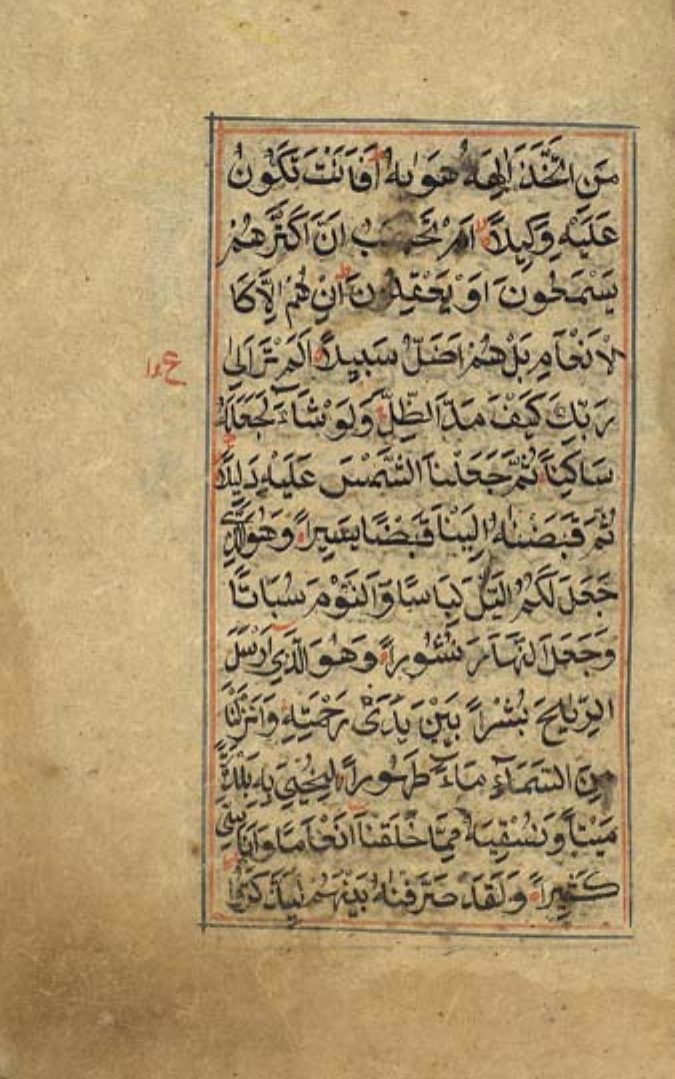 مَنِ اتَّخَذَ اِلٰهَهُ هَوٰيهُ اَفَاَنْتَ تَكُونُ
عَلَيْهِ وَكِيلًا اَمْ تَحْسَبُ اَنَّ اَكْثَرَهُمْ
يَسْمَعُونَ اَوْ يَعْقِلُونَ اِنْ هُمْ اِلَّا كَا
لْاَنْعَامِ بَلْ هُمْ اَضَلُّ سَبِيلًا اَلَمْ تَرَ اِلٰى
رَبِّكَ كَيْفَ مَدَّ الظِّلَّ وَلَوْ شَآءَ لَجَعَلَهُ
سَاكِنًا ثُمَّ جَعَلْنَا الشَّمْسَ عَلَيْهِ دَلِيلًا
ثُمَّ قَبَضْنٰهُ اِلَيْنَا قَبْضًا يَسِيرًا وَهُوَ الَّذِي
جَعَلَ لَكُمُ الَّيْلَ لِبَاسًا وَالنَّوْمَ سُبَاتًا
وَجَعَلَ النَّهَارَ نُشُورًا وَهُوَ الَّذِي اَرْسَلَ
الرِّيٰحَ بُشْرًا بَيْنَ يَدَىْ رَحْمَتِهِ وَاَنْزَلْنَا
مِنَ السَّمَآءِ مَآءً طَهُورًا لِنُحْيِيَ بِهِ بَلْدَةً
مَيْتًا وَنُسْقِيَهُ مِمَّا خَلَقْنَا اَنْعَامًا وَاَنَاسِيَّ
كَثِيرًا وَلَقَدْ صَرَّفْنٰهُ بَيْنَهُمْ لِيَذَّكَّرُوا